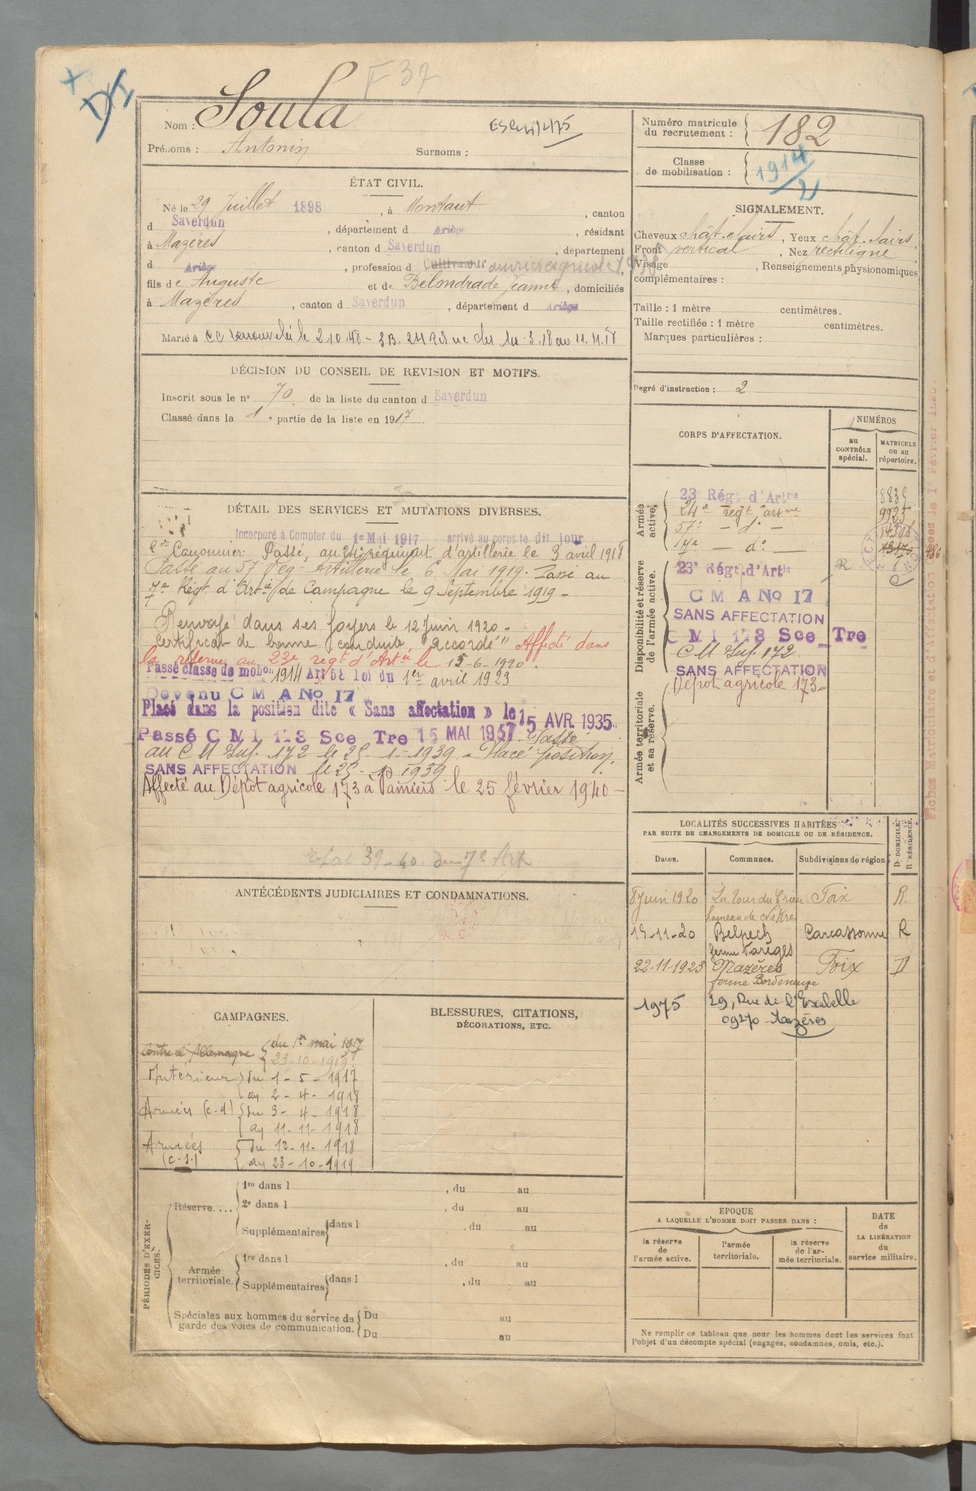 F 37
Nom : Soula
Prénoms : Antonin Surnoms :
Numéro matricule du recrutement : 182
Classe de mobilisation : 1914/2
ÉTAT CIVIL.
Né le 29 Juillet 1898, à Montaut, canton
d Saverdun, département d Ariège, résidant
à Mazères, canton d Saverdun, département
d Ariège, profession d Cultivateur
fils de Auguste et de Belondrade Jeanne, domiciliés
à Mazères, canton d Saverdun, département d Ariège
Marié à
SIGNALEMENT.
Cheveux chât. clairs, Yeux chât. clairs.
Front vertical, Nez rectiligne
Visage , Renseignements physionomiques
complémentaires :
Taille : 1 mètre centimètres.
Taille rectifiée : 1 mètre centimètres.
Marques particulières :
Degré d'instruction : 2
DÉCISION DU CONSEIL DE REVISION ET MOTIFS.
Inscrit sous le n° 70 de la liste du canton d Saverdun
Classé dans la 1e partie de la liste en 1917
DÉTAIL DES SERVICES ET MUTATIONS DIVERSES.
Incorporé à Compter du 1er Mai 1917 arrivé au corps le dit jour
Canonnier Passé au 24e régiment d'artillerie le 3 avril 1918
Passé au 57e Reg. Artillerie le 6 Mai 1919. Passé au
7e Régt d'Artie de Campagne le 9 Septembre 1919 -
Renvoyé dans ses foyers le 12 Juin 1920 -
Certificat de bonne conduite "accordé" Affecté dans
la réserve au 23e régt d'Artie le 15-6-1920
Passé classe de mobon 1914 Art 58 loi du 1er avril 1923
Devenu C M A No 17
Placé dans la position dite « Sans affectation » le 15 AVR 1935
Passé C M I 178 Sce Tre 15 MAI 1937. Passé
au C M Inf. 172 le 25-1-1939 - Placé position
SANS AFFECTATION
Affecté au Dépôt agricole 173 à Pamiers le 25 février 1940 -
CORPS D'AFFECTATION.
NUMÉROS
au CONTRÔLE spécial.
MATRICULE ou au répertoire.
Armée active.
23e Régt d'Artie
24e Regt Artie
57e - d° -
Disponibilité et réserve de l'armée active.
23e Régt d'Artie
R
C M A No 17
SANS AFFECTATION
C M I 178 Sce Tre
C M Inf. 172
SANS AFFECTATION
Dépôt agricole 173 -
Armée territoriale et sa réserve.
ANTÉCÉDENTS JUDICIAIRES ET CONDAMNATIONS.
LOCALITÉS SUCCESSIVES HABITÉES
PAR SUITE DE CHANGEMENTS DE DOMICILE OU DE RÉSIDENCE.
Dates. Communes. Subdivisions de région D. DOMICILE. R. RÉSIDENCE.
8 juin 1920 La Tour du Crieu Foix R.
15-11-20 Belpech Carcassonne R
22-11-1923 Mazères Foix D
ferme Bordeneuve
1975 29, Rue de l'
09270 - Mazères
CAMPAGNES.
Contre l'Allemagne du 1er mai 1917
23-10-1919
Intérieur du 1-5-1917
au 2-4-1918
Armées (c.d) du 3-4-1918
au 11-11-1918
Armées (c.s.) du 12-11-1918
au 23-10-1919
BLESSURES, CITATIONS,
DÉCORATIONS, ETC.
PÉRIODES D'EXERCICES.
Réserve....
1re dans l , du au
2e dans l , du au
Supplémentaires dans l , du au
Armée territoriale.
1re dans l , du au
Supplémentaires dans l , du au
Spéciales aux hommes du service de garde des voies de communication.
Du au
Du au
EPOQUE
A LAQUELLE L'HOMME DOIT PASSER DANS :
la réserve de l'armée active.
l'armée territoriale.
la réserve de l'armée territoriale.
DATE de LA LIBÉRATION du service militaire.
Ne remplir ce tableau que pour les hommes dont les services font
l'objet d'un décompte spécial (engagés, condamnés, omis, etc.).